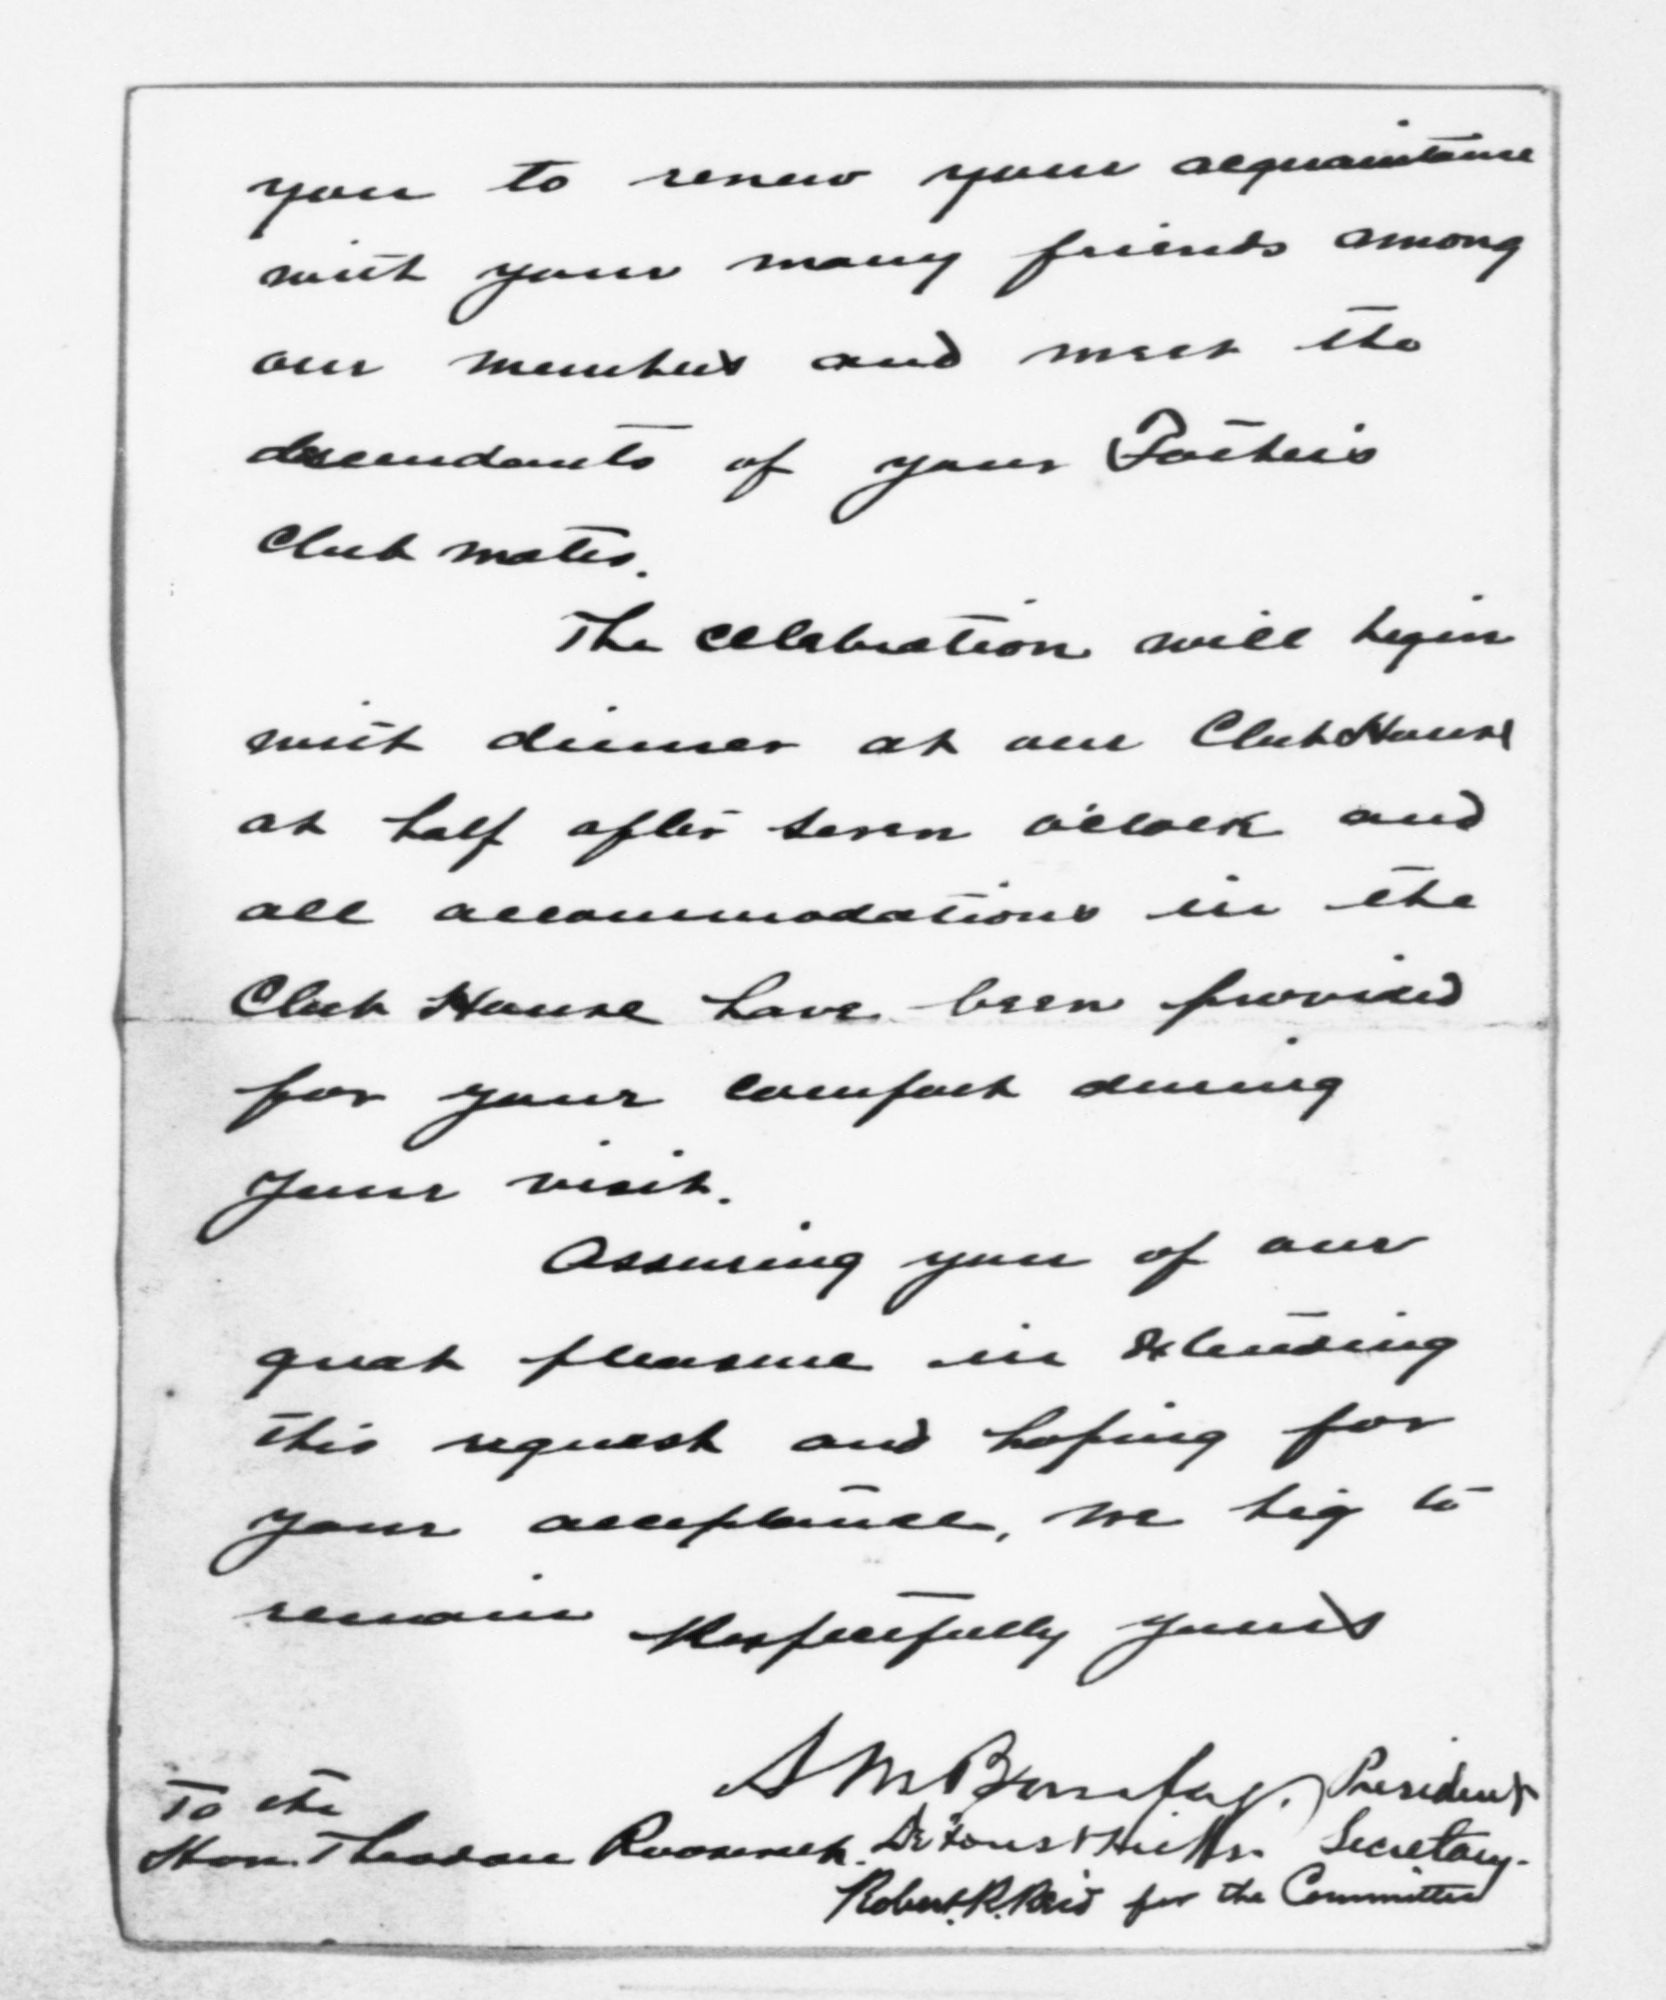 you to renew your acquaintance
with your many friends among
our members and meet the
descendants of your Father's
Club mates.
The celebration will begin
with dinner at our Club House
at half after seven o'clock and
all accommodations in the
Club House have been provided
for your comfort during
your visit.
Assuring you of our
great pleasure in extending
this request and hoping for
your acceptance, we beg to
remain Respectfully yours
S M President
To the
Hon. Theodore Roosevelt. Secretary.
Robert. R. Reid for the Committee